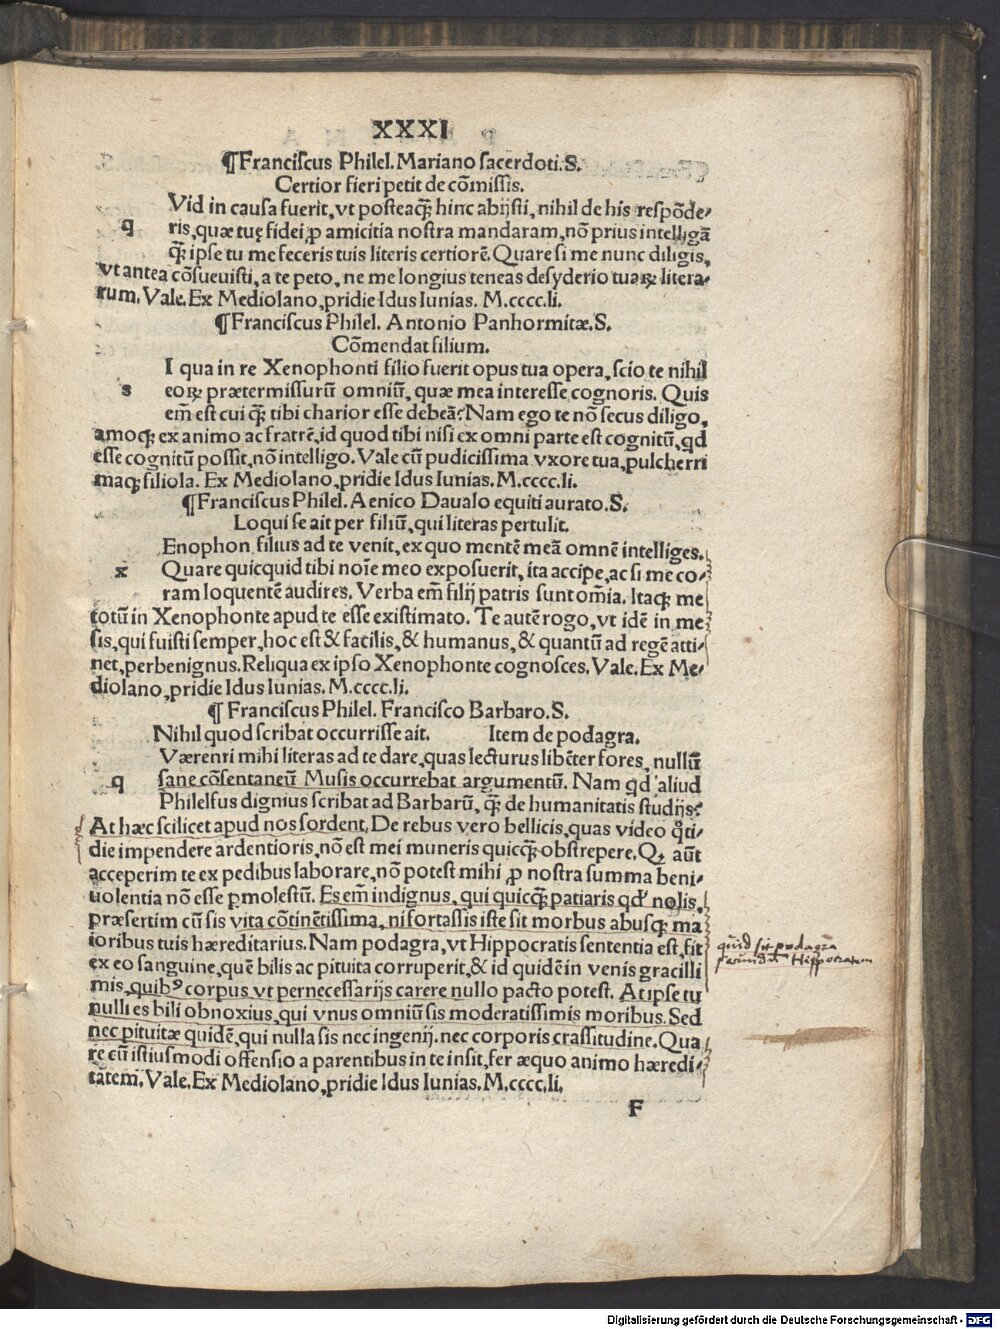 XXXI
¶Franciscus Philel. Mariano sacerdoti.S.
Certior fieri petit de cõmissis.
Vid in causa fuerit, vt posteaq̃ꝫ hinc abijsti, nihil de his respõde⸗
q ris, quæ tuę fidei, ꝓ amicitia nostra mandaram, nõ prius intelligã
q̃ꝫ ipse tu me feceris tuis literis certiorẽ. Quare si me nunc diligis,
vt antea cõsueuisti, a te peto, ne me longius teneas desyderio tuaꝝ litera⸗
rum. Vale. Ex Mediolano, pridie Idus Iunias. M.cccc.li.
¶Franciscus Philel. Antonio Panhormitæ.S.
Cõmendat filium.
I qua in re Xenophonti filio fuerit opus tua opera, scio te nihil
s eoꝝ prætermissurũ omniũ, quæ mea interesse cognoris. Quis
em̃ est cui q̃ꝫ tibi charior esse debeã? Nam ego te nõ secus diligo,
amoqꝫ ex animo ac fratrẽ, id quod tibi nisi ex omni parte est cognitũ, qd
esse cognitũ possit, nõ intelligo. Vale cũ pudicissima vxore tua, pulcherri
maqꝫ filiola. Ex Mediolano, pridie Idus Iunias. M.cccc.li.
¶Franciscus Philel. Aenico Daualo equiti aurato.S.
Loqui se ait per filiũ, qui literas pertulit.
Enophon filius ad te venit, ex quo mentẽ meã omnẽ intelliges.
x Quare quicquid tibi noĩe meo exposuerit, ita accipe, ac si me co⸗
ram loquentẽ audires. Verba em̃ filij patris sunt om̃ia. Itaqꝫ me
totũ in Xenophonte apud te esse existimato. Te autẽ rogo, vt idẽ in me
sis, qui fuisti semper, hoc est & facilis, & humanus, & quantũ ad regẽ atti⸗
net, perbenignus. Reliqua ex ipso Xenophonte cognosces. Vale. Ex Me⸗
diolano, pridie Idus Iunias. M.cccc.li.
¶ Franciscus Philel. Francisco Barbaro.S.
Nihil quod scribat occurrisse ait. Item de podagra.
Værenri mihi literas ad te dare, quas lecturus libẽter fores, nullũ
q sane cõsentaneũ Musis occurrebat argumentũ. Nam qd aliud
Philelfus dignius scribat ad Barbarũ, q̃ꝫ de humanitatis studijs?
At hæc scilicet apud nos sordent. De rebus vero bellicis, quas video q̃ti⸗
die impendere ardentioris, nõ est mei muneris quicq̃ꝫ obstrepere. Qꝫ aũt
acceperim te ex pedibus laborare, nõ potest mihi ꝓ nostra summa beni⸗
uolentia nõ esse ꝑmolestũ. Es em̃ indignus, qui quicq̃ꝫ patiaris qd' nolis,
præsertim cũ sis vita cõtinẽtissima, ni fortassis iste sit morbus abusqꝫ ma
ioribus tuis hæreditarius. Nam podagra, vt Hippocratis sententia est, fit
ex eo sanguine, quẽ bilis ac pituita corruperit, & id quidẽ in venis gracilli
mis, quibꝰ corpus vt pernecessarijs carere nullo pacto potest. At ipse tu
nulli es bili obnoxius, qui vnus omniũ sis moderatissimis moribus. Sed
nec pituitæ quidẽ, qui nulla sis nec ingenij, nec corporis crassitudine. Qua
re cũ istiusmodi offensio a parentibus in te insit, fer æquo animo hæredi⸗
tatem. Vale. Ex Mediolano, pridie Idus Iunias. M.cccc.li.
quid sit podagra
secundum Hippocratem
F
Digitalisierung gefördert durch die Deutsche Forschungsgemeinschaft - DFG